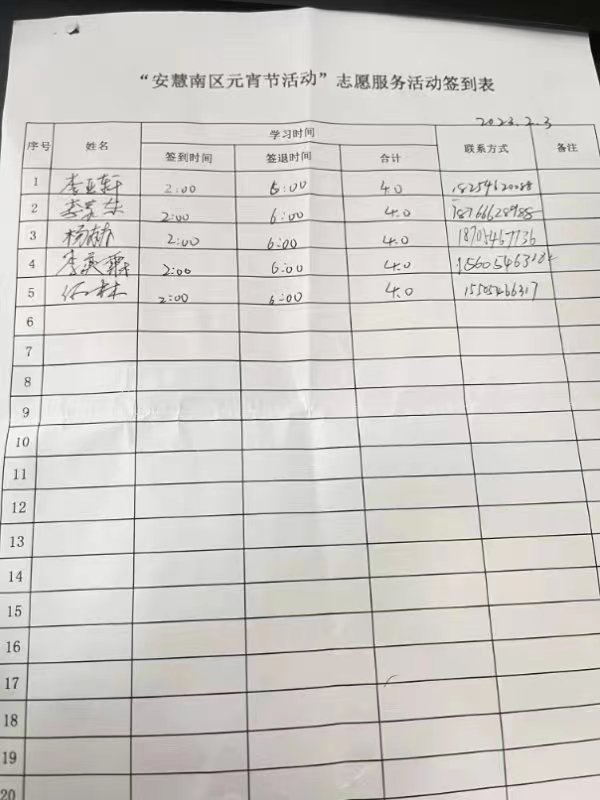 “安慧南区元宵节活动”志愿服务活动签到表
2023.2.3
序号 姓名 学习时间 联系方式 备注
签到时间 签退时间 合计
1 李亚轩 2:00 6:00 4.0 18254620088
2 2:00 6:00 4.0 18766628988
3 杨 2:00 6:00 4.0 18705467136
4 李 2:00 6:00 4.0
5 林 2:00 6:00 4.0 15505466317
6
7
8
9
10
11
12
13
14
15
16
17
18
19
20